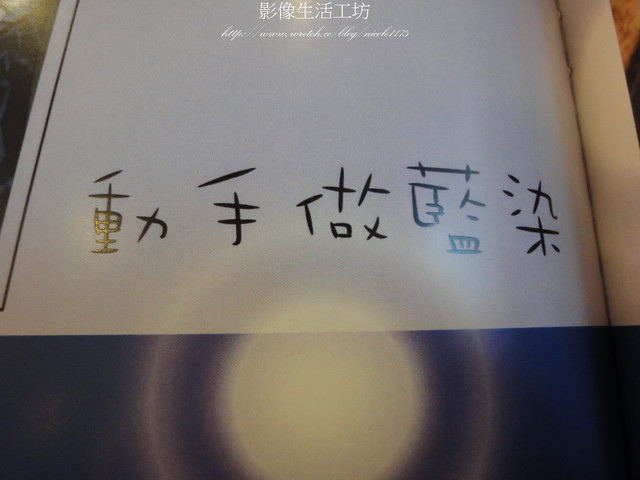 影像生活工坊
http://www.wretch.cc/blog/nicole1175
動手做藍染